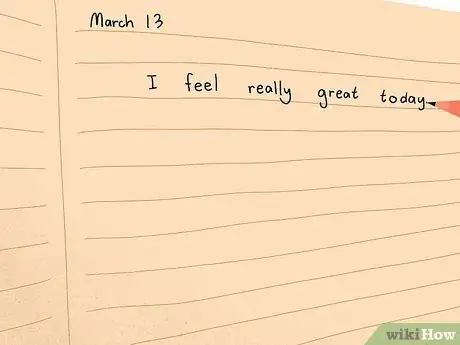 March 13
I feel really great today
wikiHow